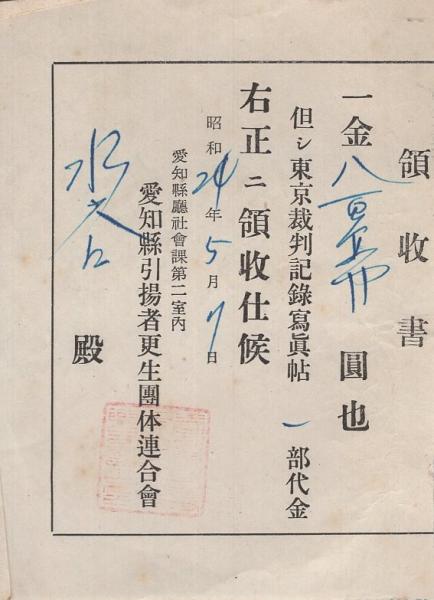 領收書
一金八百 圓也
但シ東京裁判記錄寫眞帖一部代金
右正ニ領收仕候
昭和24年5月7日
愛知縣廳社會課第二室內
愛知縣引揚者更生團体連合會
水 殿